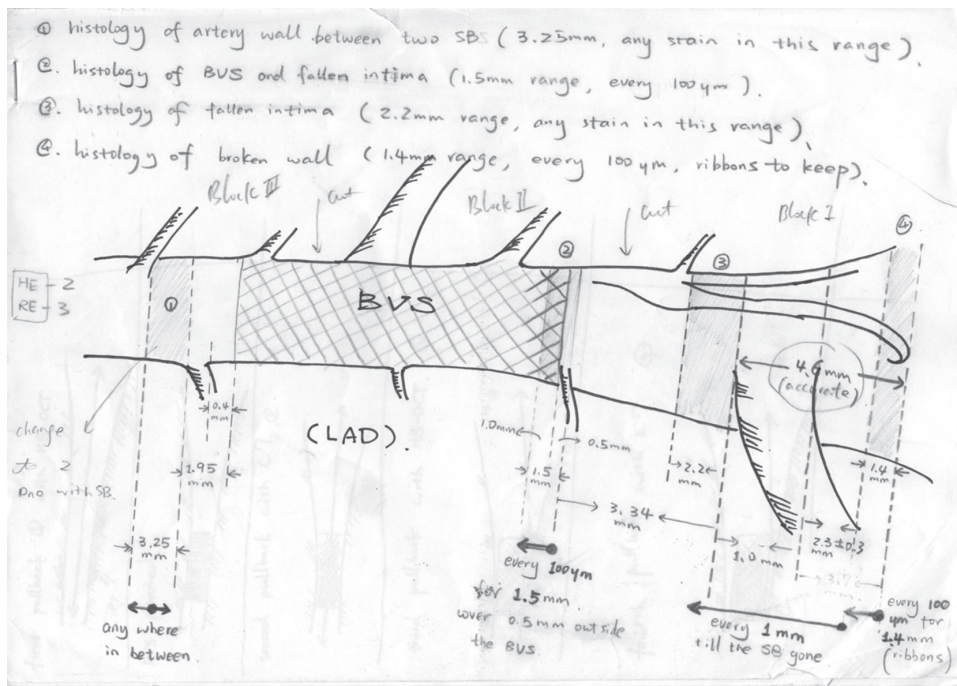 ① histology of artery wall between two SBS (3.25mm, any stain in this range).
②. histology of BVS and fallen intima (1.5mm range, every 100 ym).
③. histology of fallen intima (2.2mm range, any stain in this range).
④. histology of broken wall (1.4mm range, every 100 ym, ribbons to keep).
Block III
cut
Block II
cut
Block I
④
②
③
HE - 2
RE - 3
①
BVS
4.6 mm
(accurate)
0.4
mm
(LAD)
1.0mm
0.5mm
change
to 2
one with SB.
1.95
mm
1.5
mm
2.2
mm
1.4
mm
3.34
mm
3.25
mm
1.0 mm
2.3 ± 0.3
mm
every 100ym
for 1.5mm.
cover 0.5mm outside
the BVS.
any where
in between.
every 1mm
till the SB gone
every 100
ym for
1.4mm
(ribbons)